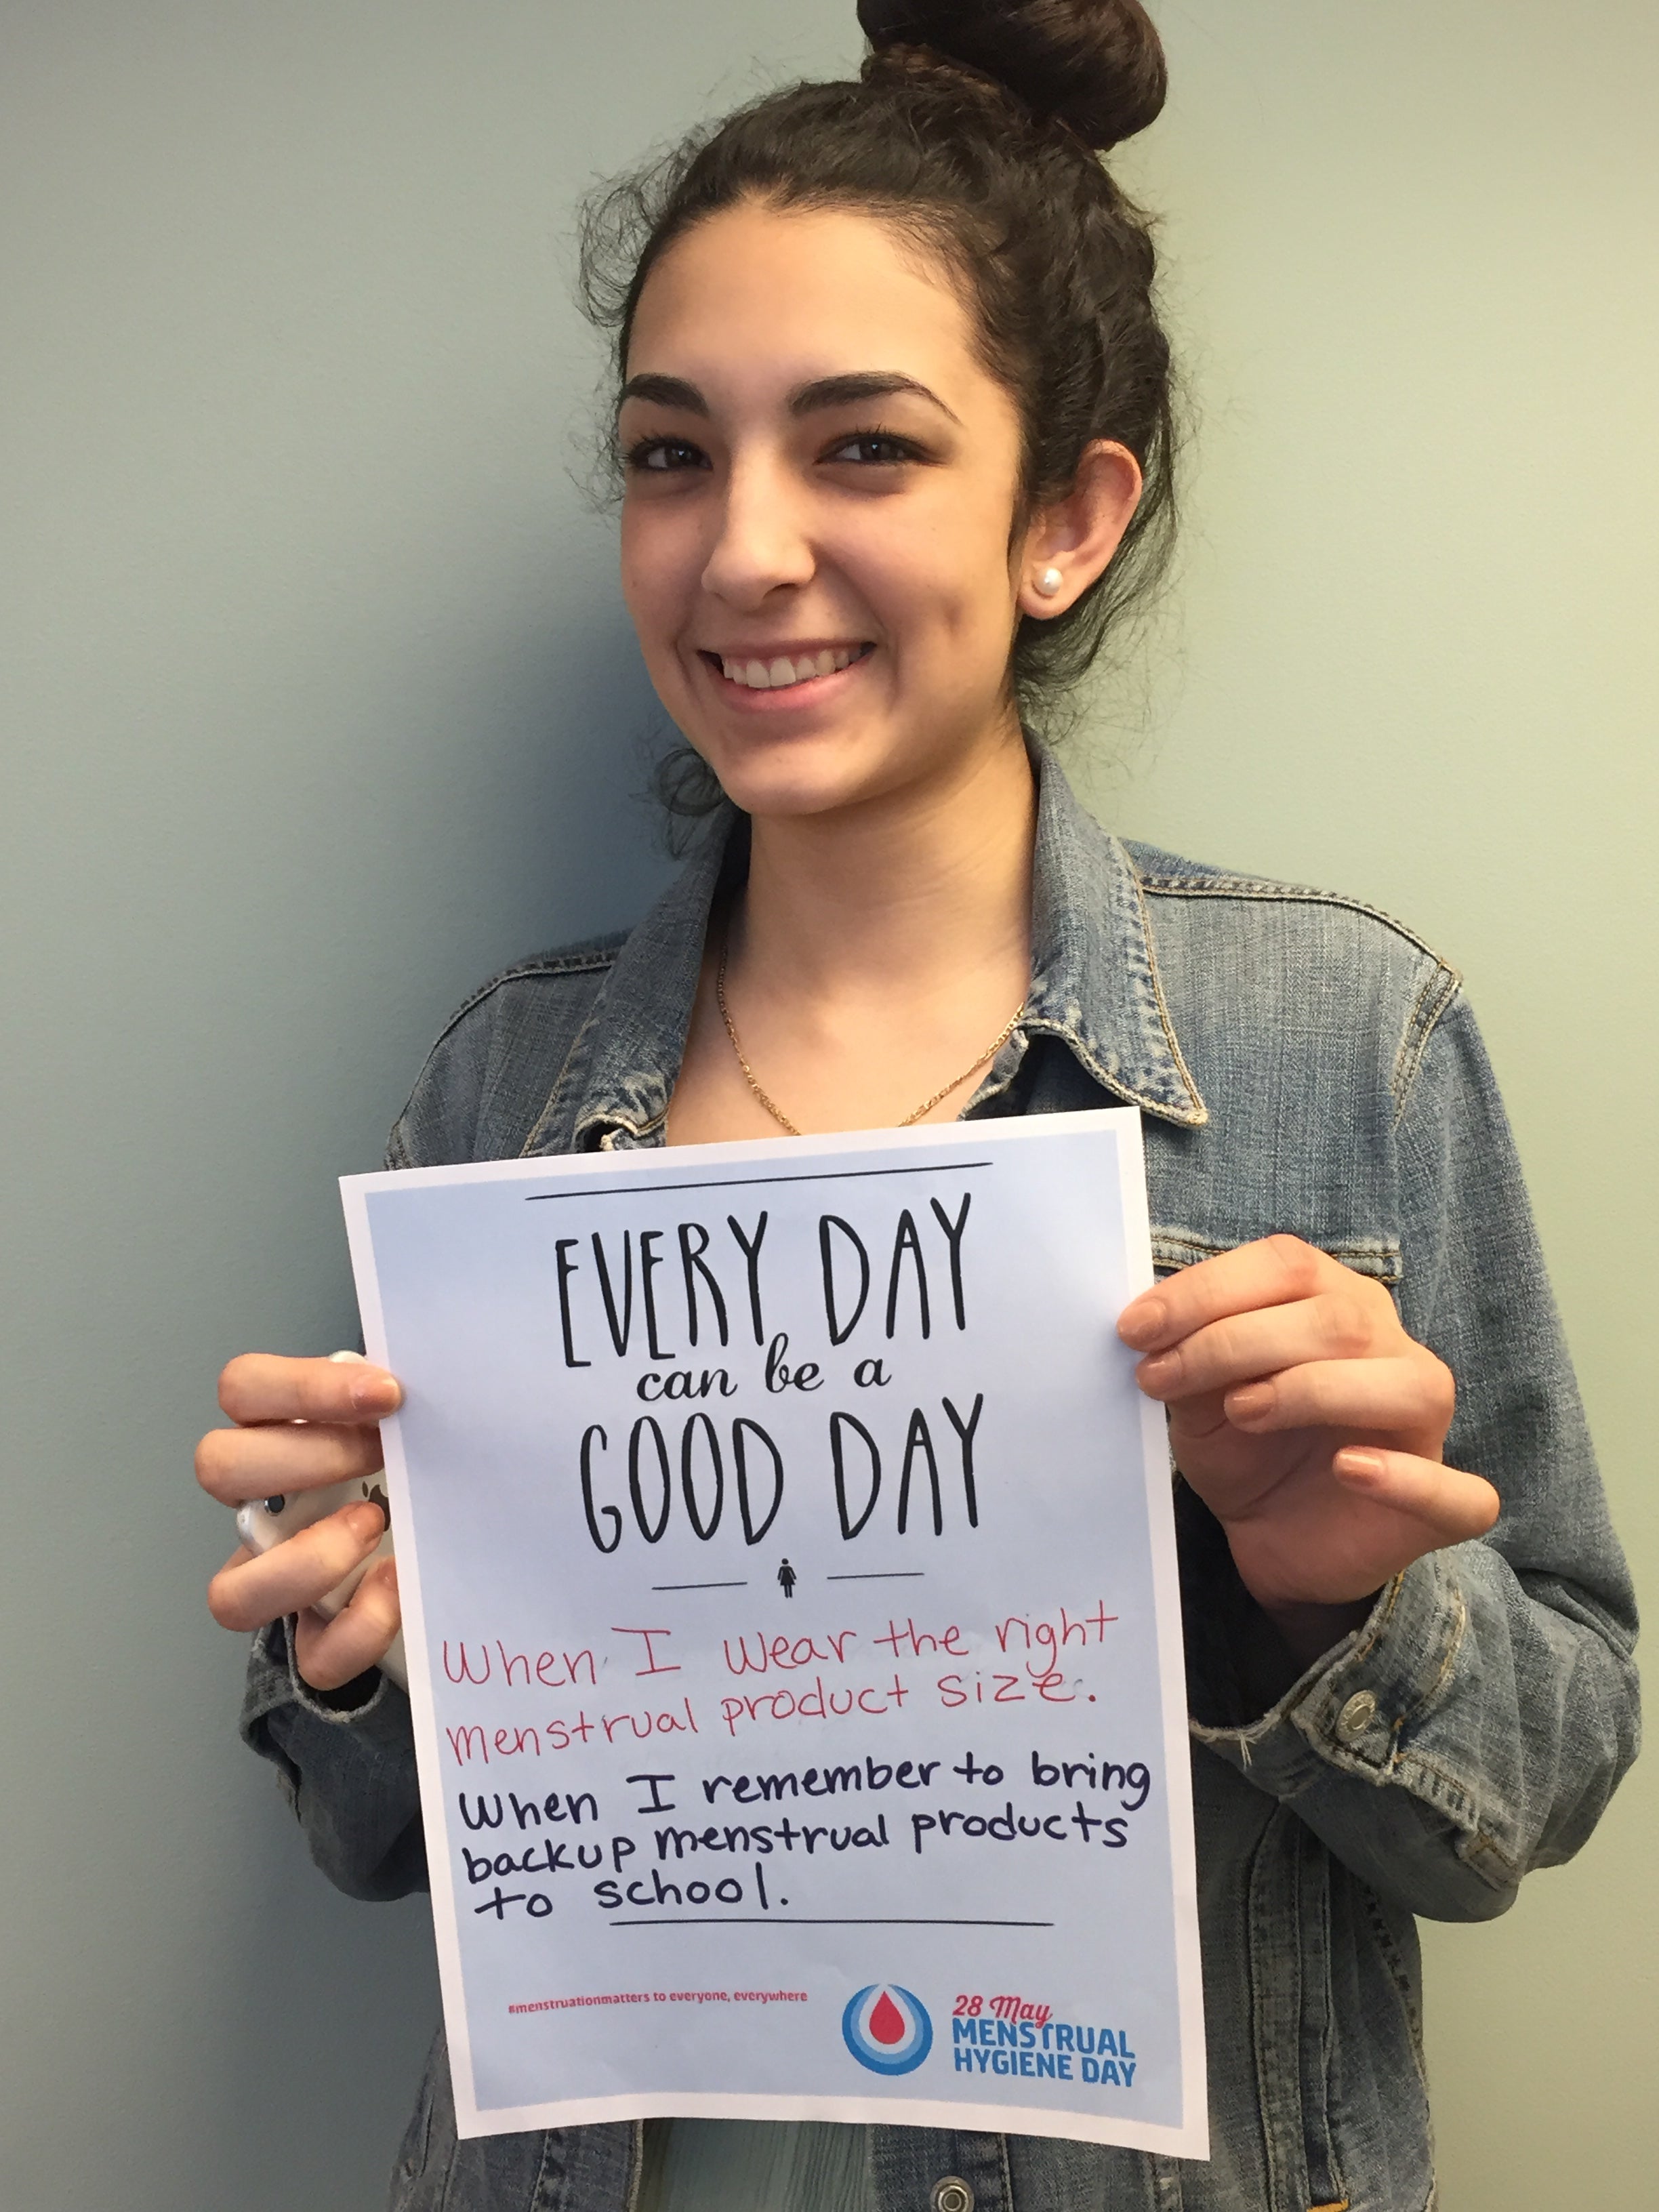 EVERY DAY
can be a
GOOD DAY
When I wear the right
menstrual product size.
When I remember to bring
backup menstrual products
to school.
#menstruationmatters to everyone, everywhere
28 May
MENSTRUAL
HYGIENE DAY